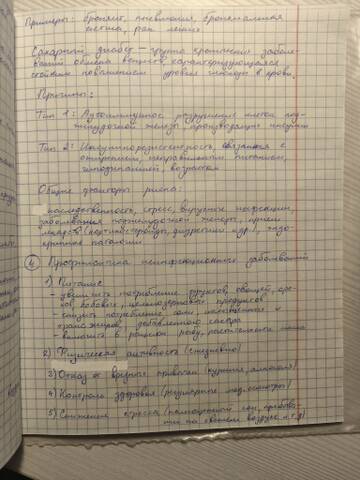 Примеры: бронхит, пневмония, бронхиальная
астма, рак легких
Сахарный диабет – группа хронических заболе-
ваний обмена веществ, характеризующаяся
стойким повышением уровня глюкозы в крови.
Причины:
Тип 1: Аутоиммунное разрушение клеток под-
желудочной железы, производящих инсулин
Тип 2: Инсулинорезистентность, связанная с
ожирением, неправильным питанием,
гиподинамией, возрастом
Общие факторы риска:
наследственность, стресс, вирусные инфекции,
заболевания поджелудочной железы, прием
лекарств (кортикостероиды, диуретики и др.), эндо-
кринные патологии
4 Профилактика неинфекционных заболеваний
1) Питание
- увеличить потребление фруктов, овощей, оре-
хов, бобовых, цельнозерновых продуктов
- снизить потребление соли, насыщенных и
трансжиров, добавленного сахара
- включить в рацион рыбу, растительные масла
2) Физическая активность (ежедневно)
3) Отказ от вредных привычек (курения, алкоголя)
4) Контроль здоровья (регулярные медосмотры)
5) Снижение стресса (полноценный сон, пребыва-
ние на свежем воздухе и т.д)